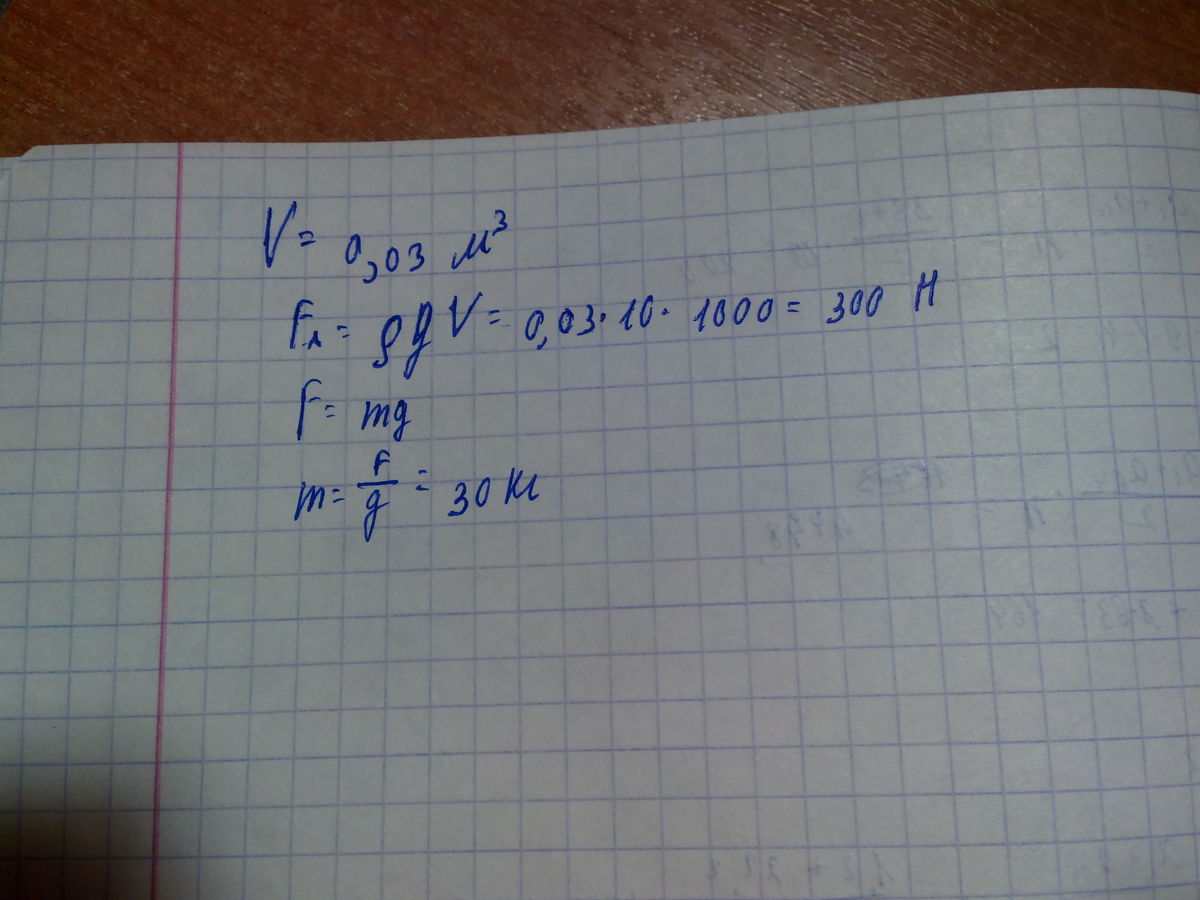 V = 0,03 м³
Fд = ρgV = 0,03 · 10 · 1000 = 300 Н
F = mg
m = F/g = 30 кг